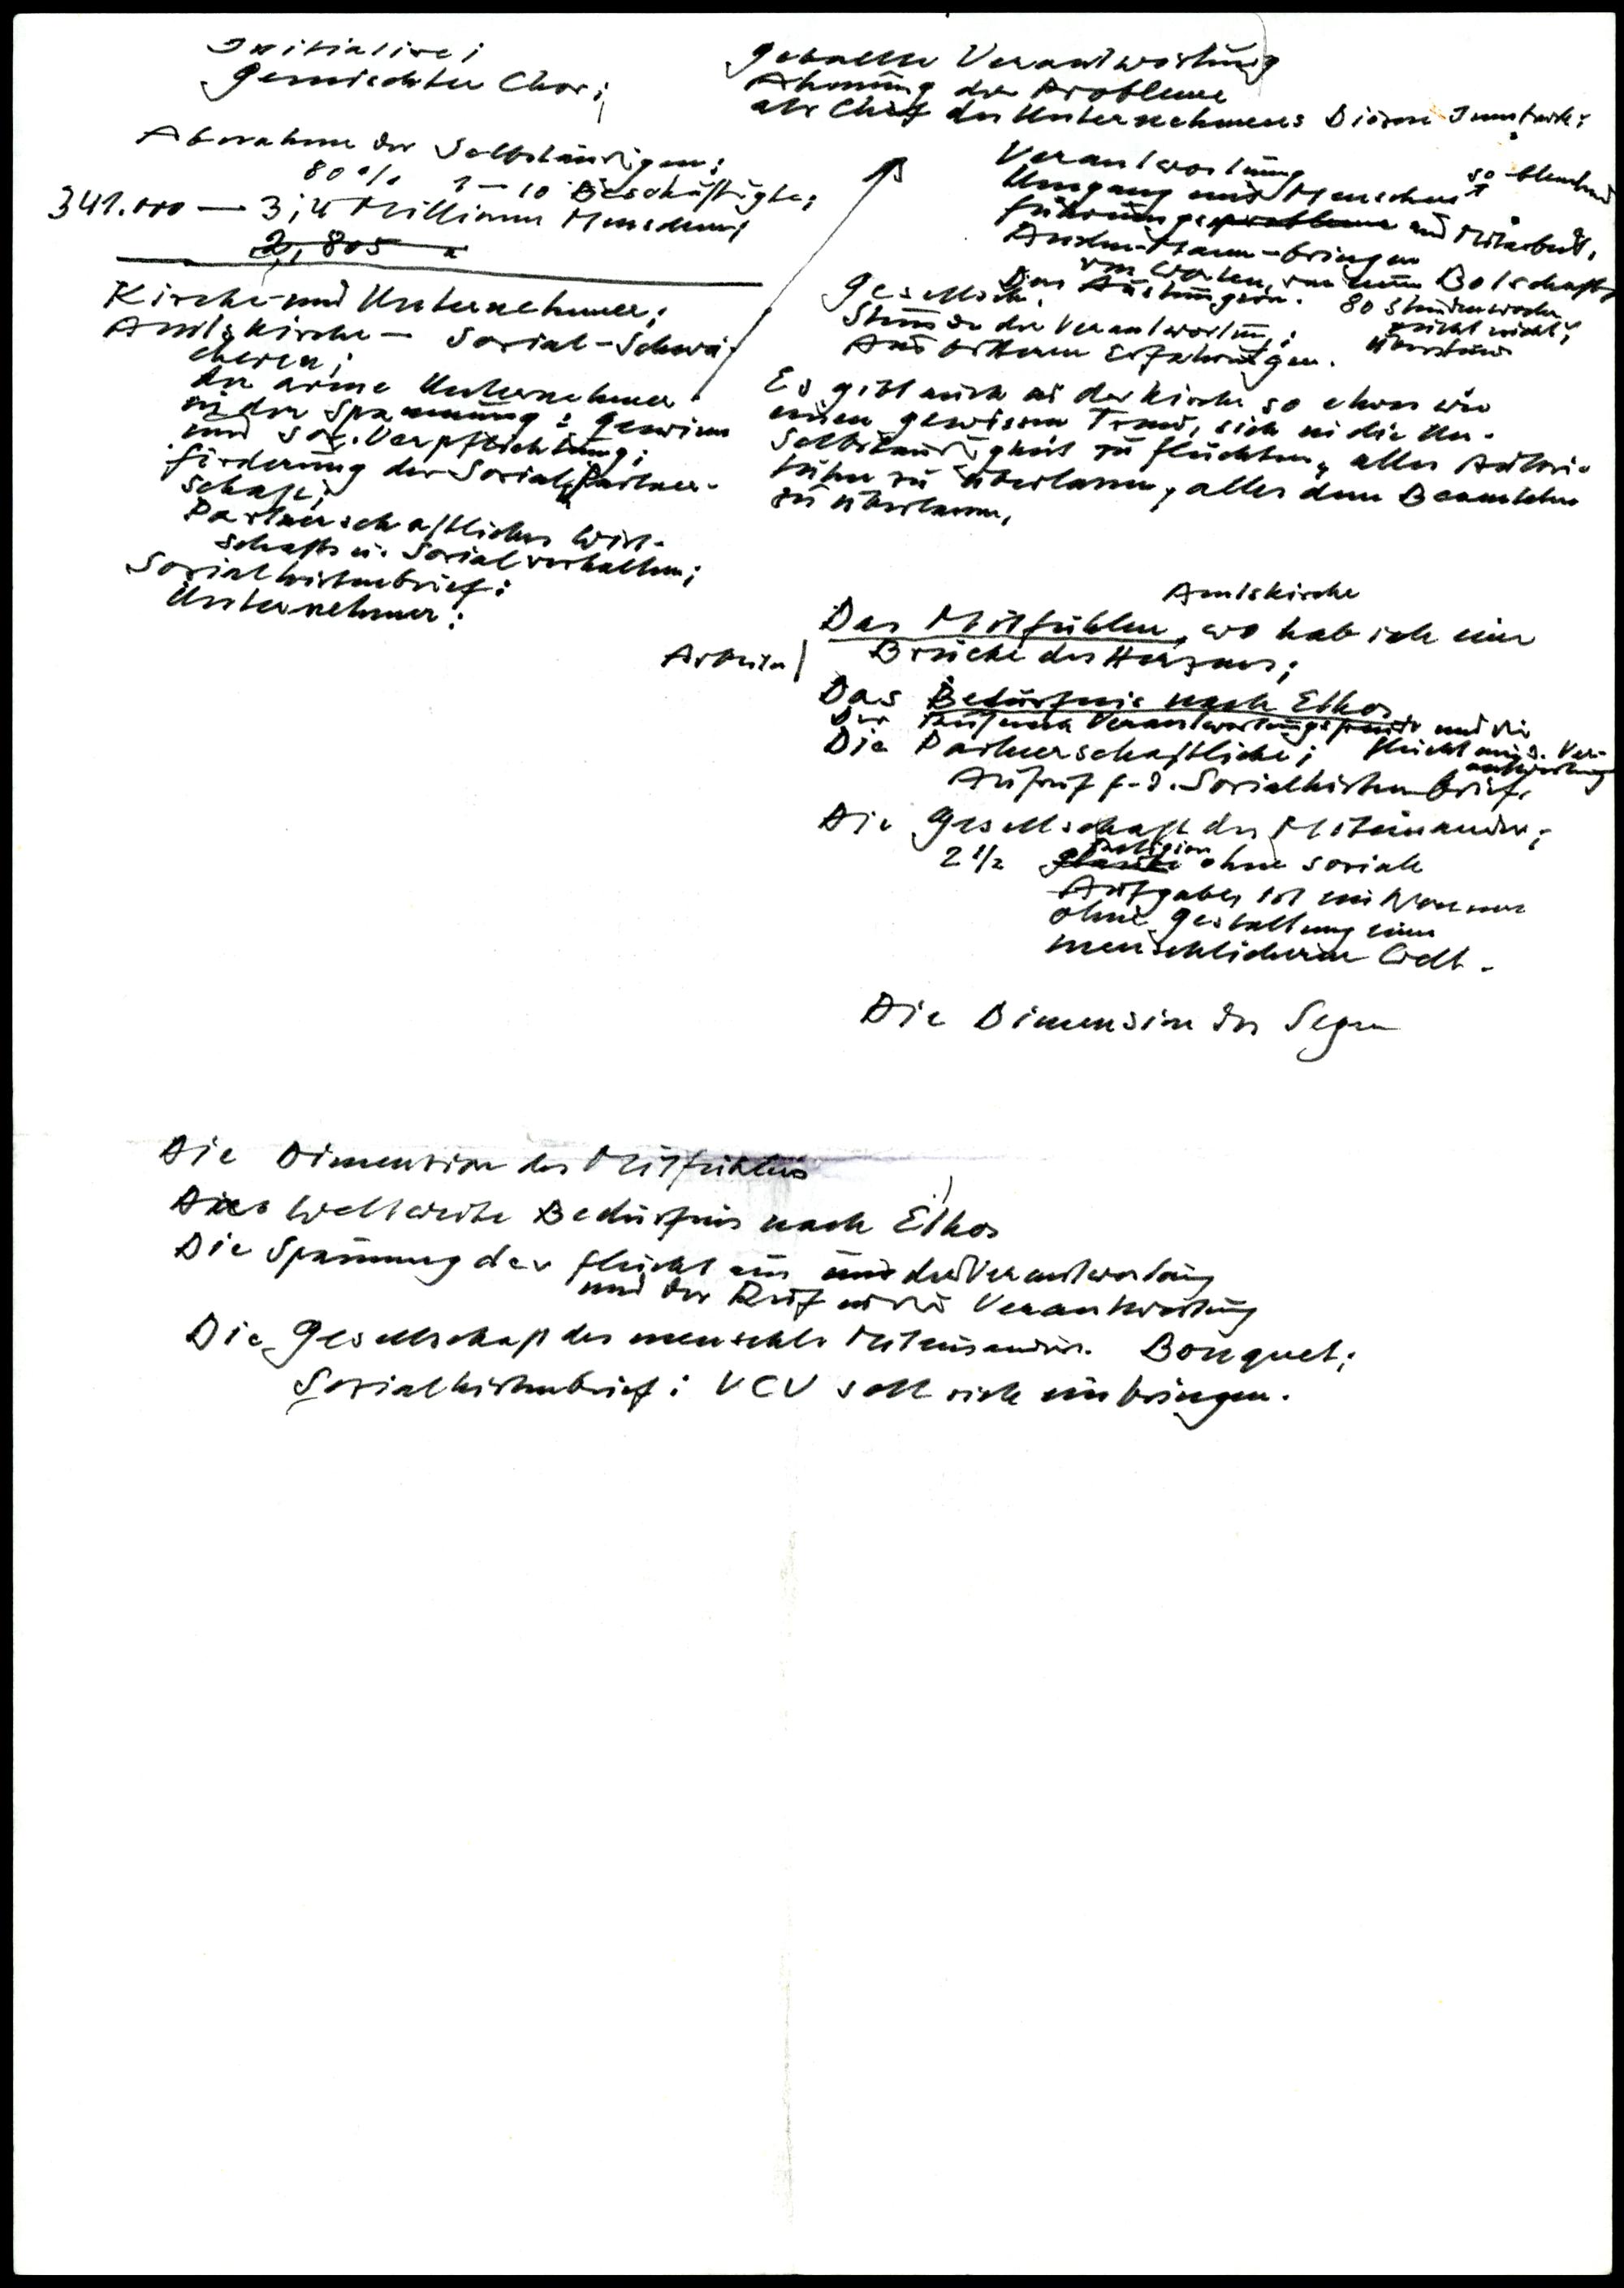 Initiative;
Gemischter Chor;
Abnahme der Selbständigen;
80 % 1 – 10 Beschäftigte;
341.000 — 3,4 Millionen Menschen;
2,805
Kirche und Unternehmer;
Amtskirche – Sozial-Schwä-
cheren;
Der arme Unternehmer
in der Spannung: Gewinn
und soz. Verpflichtung;
Förderung der Sozialpartner-
schaft;
Partnerschaftliches Wirt-
schafts u. Sozialverhalten;
Sozialhirtenbrief:
Unternehmer:
Geballte Verantwortung
Ahnung der Probleme
als Chef des Unternehmens Diözese Innsbruck:
Verantwortung
Umgang mit Menschen so
Führungsprobleme und Mitarbeit,
An den-Mann-bringen
von Worten, von einer Botschaft
Gesellsch. Das
80 Stundenwoche
reicht nicht;
Stunde der Verantwortung;
Aus bitteren Erfahrungen.
Es gibt auch in der Kirche so etwas wie
einen gewissen Trend, sich in die Un-
selbständigkeit zu flüchten, alles
zu überlassen, alles dem Beamten
zu überlassen,
Amtskirche
Das Mitfühlen, wo hab ich eine
Brücke des Herzens;
Das Bedürfnis nach Ethos
Der und die
Flucht aus d. Ver-
antwortung
Die Partnerschaftliche;
Aufruf f. d. Sozialhirtenbrief,
Die Gesellschaft des Miteinander;
2 1/2 Glaube Religion ohne soziale
Aufgaben ist ein
ohne Gestaltung einer
menschlicheren Welt.
Die Dimension des Segen
Die Dimension des Mitfühlens
Das weltweite Bedürfnis nach Ethos
Die Spannung der Flucht aus der Verantwortung
und der Ruf in die Verantwortung
Die Gesellschaft des menschl. Miteinander. Bouquet;
Sozialhirtenbrief: VCV soll sich einbringen.